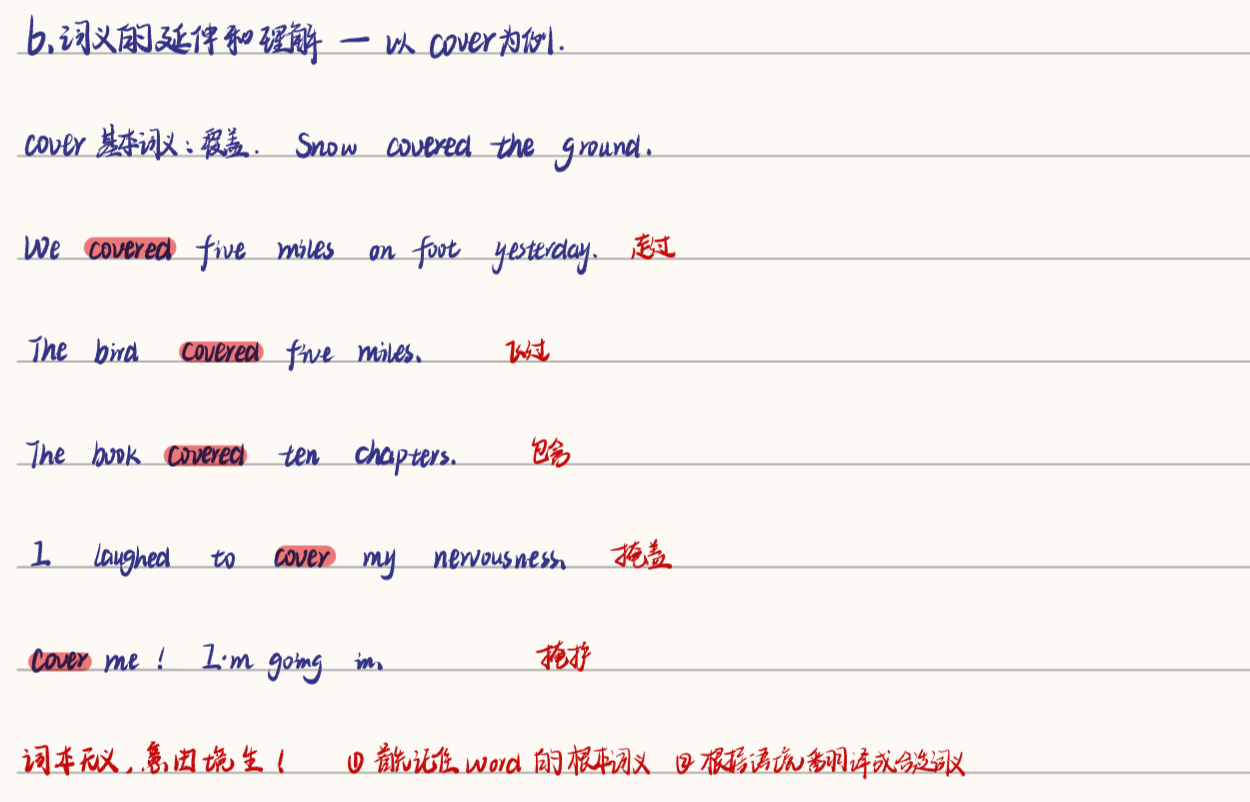 b.词义的延伸和理解 — 以 cover为例.
cover 基本词义：覆盖. Snow covered the ground.
We covered five miles on foot yesterday. 走过
The bird covered five miles. 飞过
The book covered ten chapters. 包含
I laughed to cover my nervousness. 掩盖
Cover me! I'm going in. 掩护
词本无义，意因境生! ① 首先记住 word 的根本词义 ② 根据语境翻译成合适词义